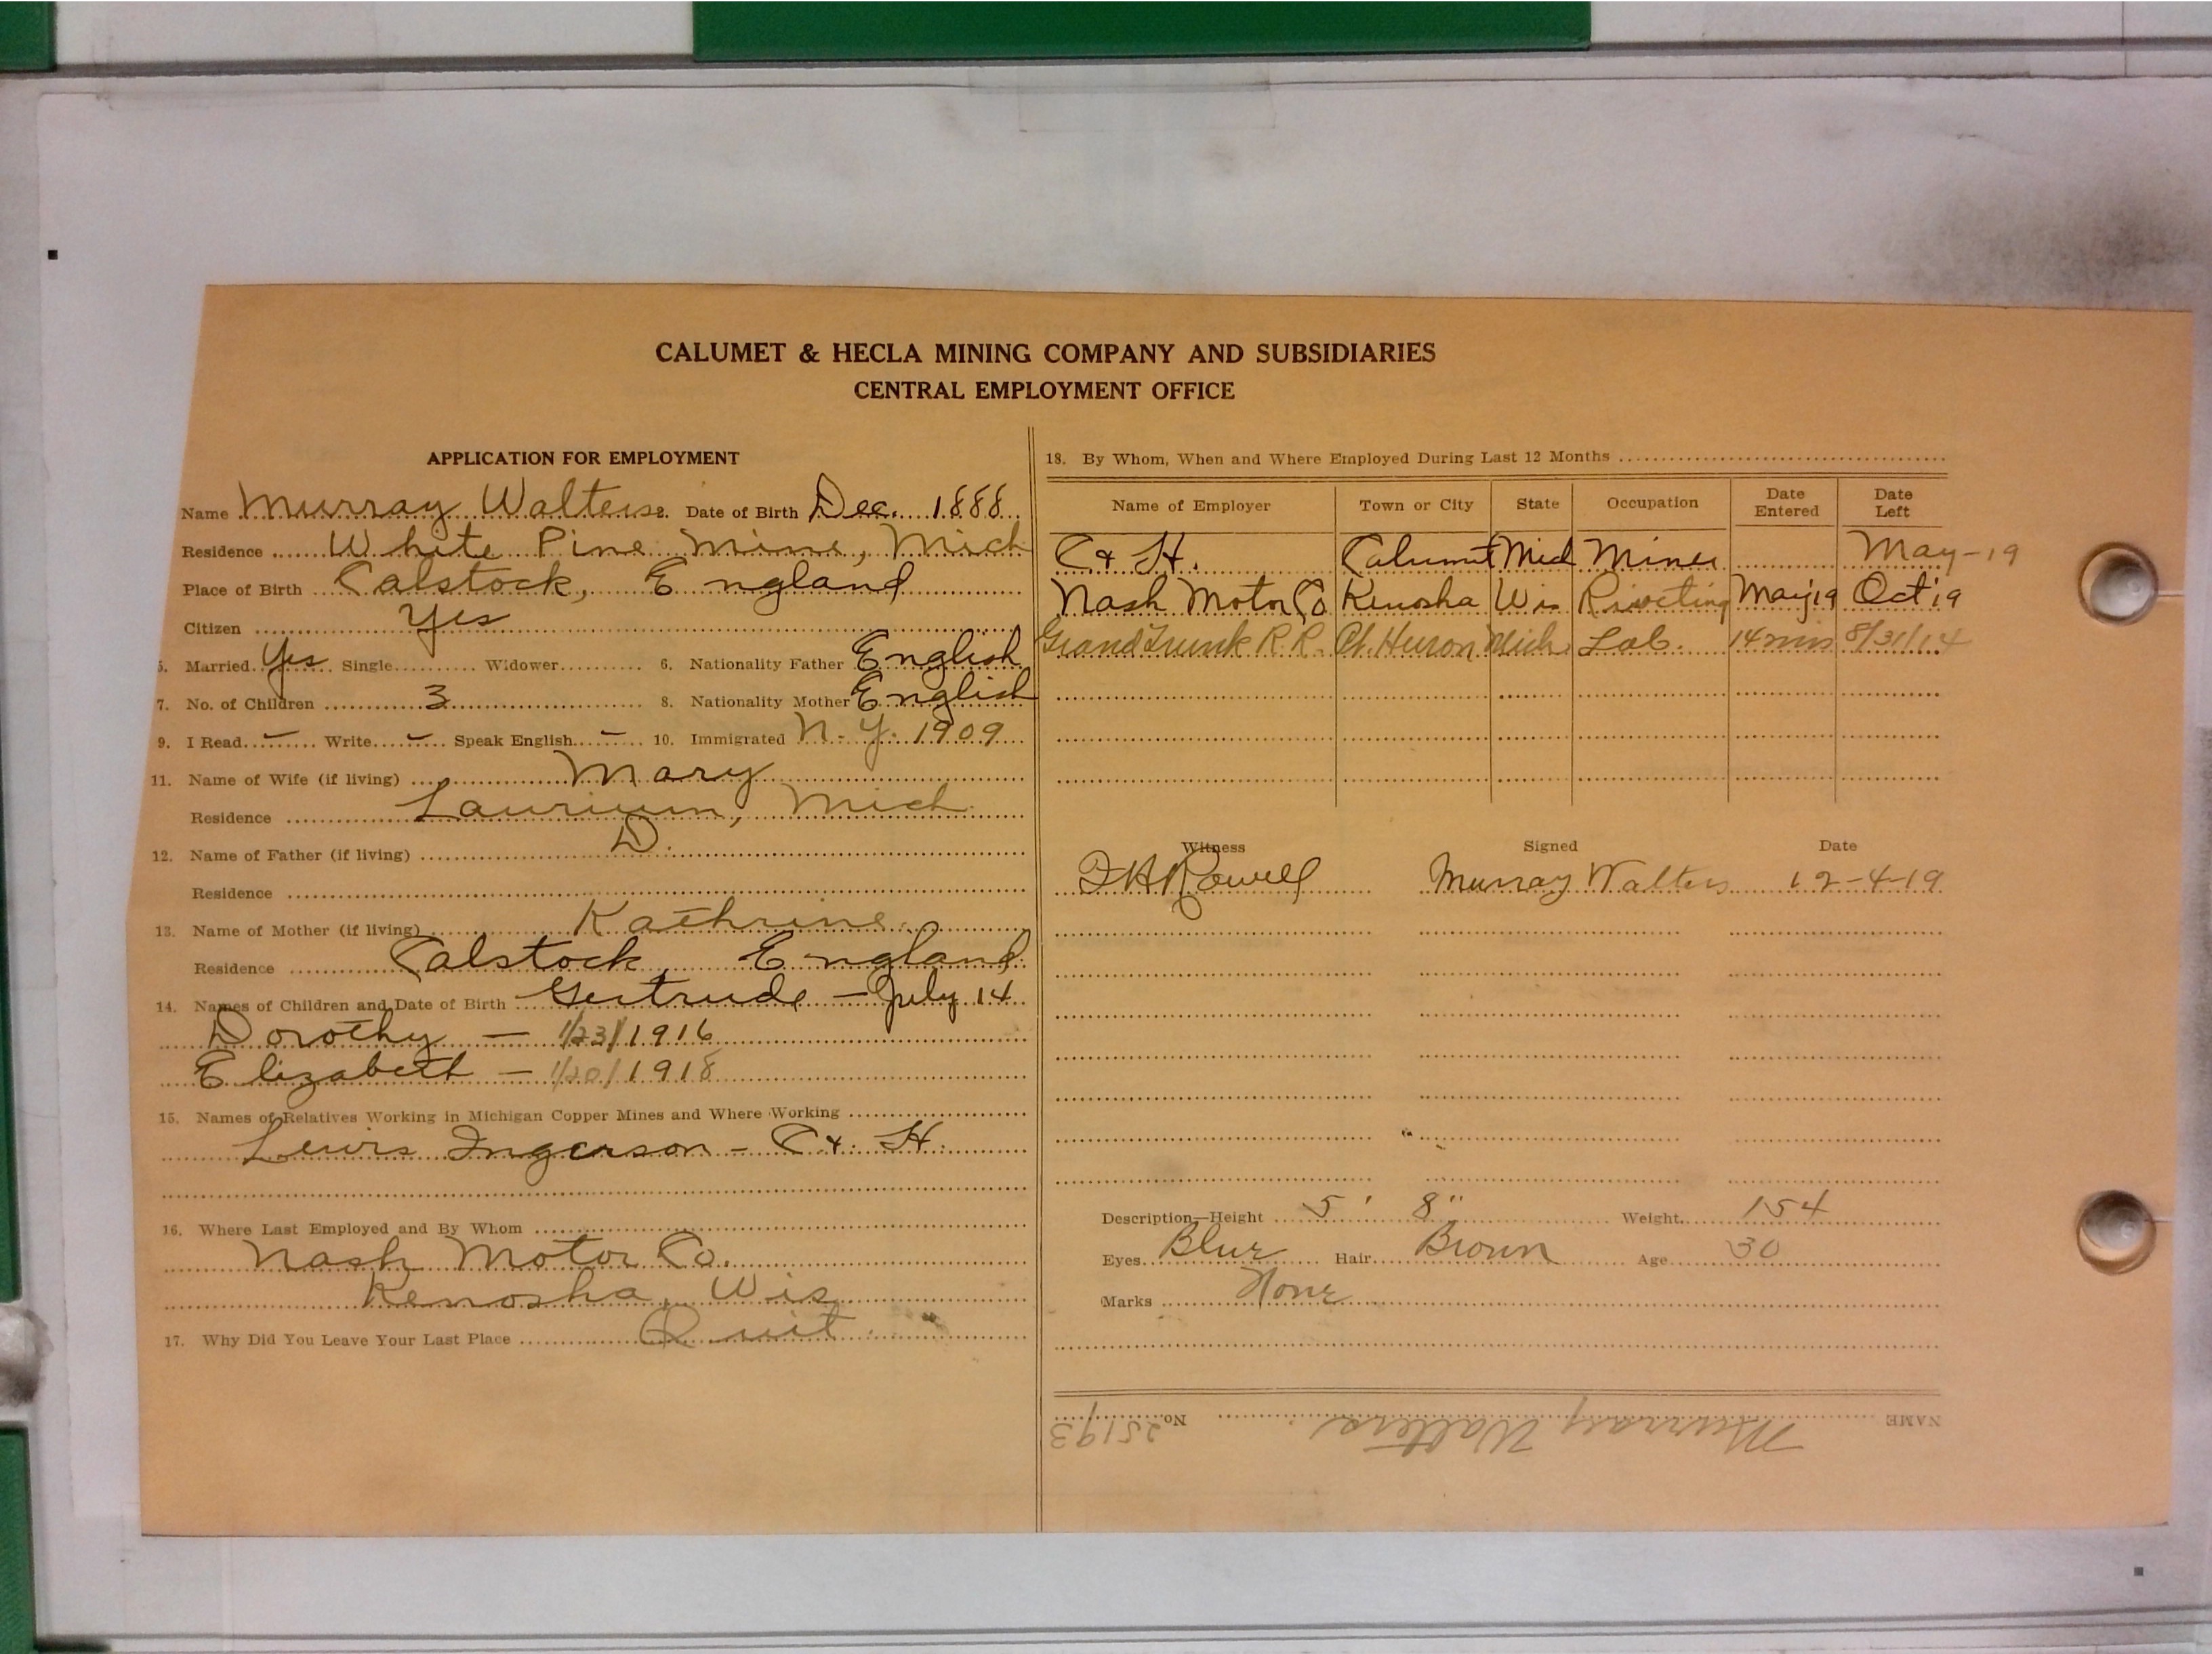 CALUMET & HECLA MINING COMPANY AND SUBSIDIARIES
CENTRAL EMPLOYMENT OFFICE
APPLICATION FOR EMPLOYMENT
Name Murray Walters 2. Date of Birth Dec. 1888
Residence White Pine Mine, Mich
Place of Birth Calstock, England
Citizen Yes
5. Married Yes Single Widower 6. Nationality Father English
7. No. of Children 3 8. Nationality Mother English
9. I Read - Write - Speak English - 10. Immigrated N.Y. 1909
11. Name of Wife (if living) Mary
Residence Laurium, Mich.
12. Name of Father (if living) D.
Residence
13. Name of Mother (if living) Kathrine
Residence Calstock, England
14. Names of Children and Date of Birth Gertrude - July 14
Dorothy - 1/23/1916
Elizabeth - 1/20/1918
15. Names of Relatives Working in Michigan Copper Mines and Where Working
Lewis Ingerson - C & H.
16. Where Last Employed and By Whom
Nash Motor Co.
Kenosha, Wis
17. Why Did You Leave Your Last Place Quit
18. By Whom, When and Where Employed During Last 12 Months
Name of Employer Town or City State Occupation Date Entered Date Left
C & H. Calumet Mich Miner May-19
Nash Motor Co Kenosha Wis Riveting May 19 Oct 19
Grand Trunk R.R. Pt. Huron Mich Lab. 14 mos 8/31/14
Witness Signed Date
Powell Murray Walters 12-4-19
Description—Height 5' 8" Weight 154
Eyes Blue Hair Brown Age 30
Marks None
NAME Murray Walters No. 25193